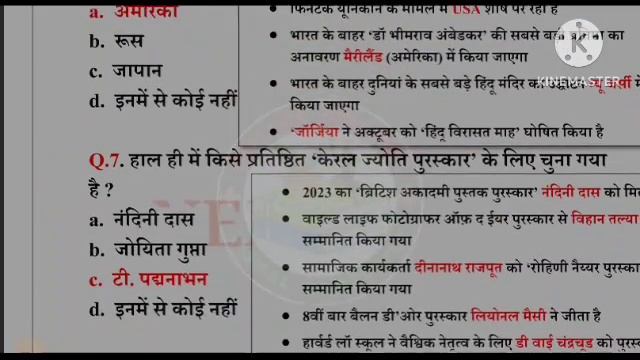 a. अमेरिका
b. रूस
c. जापान
d. इनमें से कोई नहीं
फिनटेक यूनिकॉर्न के मामले में USA शीर्ष पर रहा है
भारत के बाहर 'डॉ भीमराव अंबेडकर' की सबसे बड़ी का
अनावरण मैरीलैंड (अमेरिका) में किया जाएगा
भारत के बाहर दुनियां के सबसे बड़े हिंदू मंदिर का
किया जाएगा
'जॉर्जिया ने अक्टूबर को 'हिंदू विरासत माह' घोषित किया है
KINEMASTER
Q.7. हाल ही में किसे प्रतिष्ठित 'केरल ज्योति पुरस्कार' के लिए चुना गया
है ?
a. नंदिनी दास
b. जोयिता गुप्ता
c. टी. पद्मनाभन
d. इनमें से कोई नहीं
2023 का 'ब्रिटिश अकादमी पुस्तक पुरस्कार' नंदिनी दास को
वाइल्ड लाइफ फोटोग्राफर ऑफ़ द ईयर पुरस्कार से विहान तल्या
सम्मानित किया गया
सामाजिक कार्यकर्ता दीनानाथ राजपूत को 'रोहिणी नैय्यर
सम्मानित किया गया
8वीं बार बैलन डी'ओर पुरस्कार लियोनल मैसी ने जीता है
हार्वर्ड लॉ स्कूल ने वैश्विक नेतृत्व के लिए डी वाई चंद्रचूड को